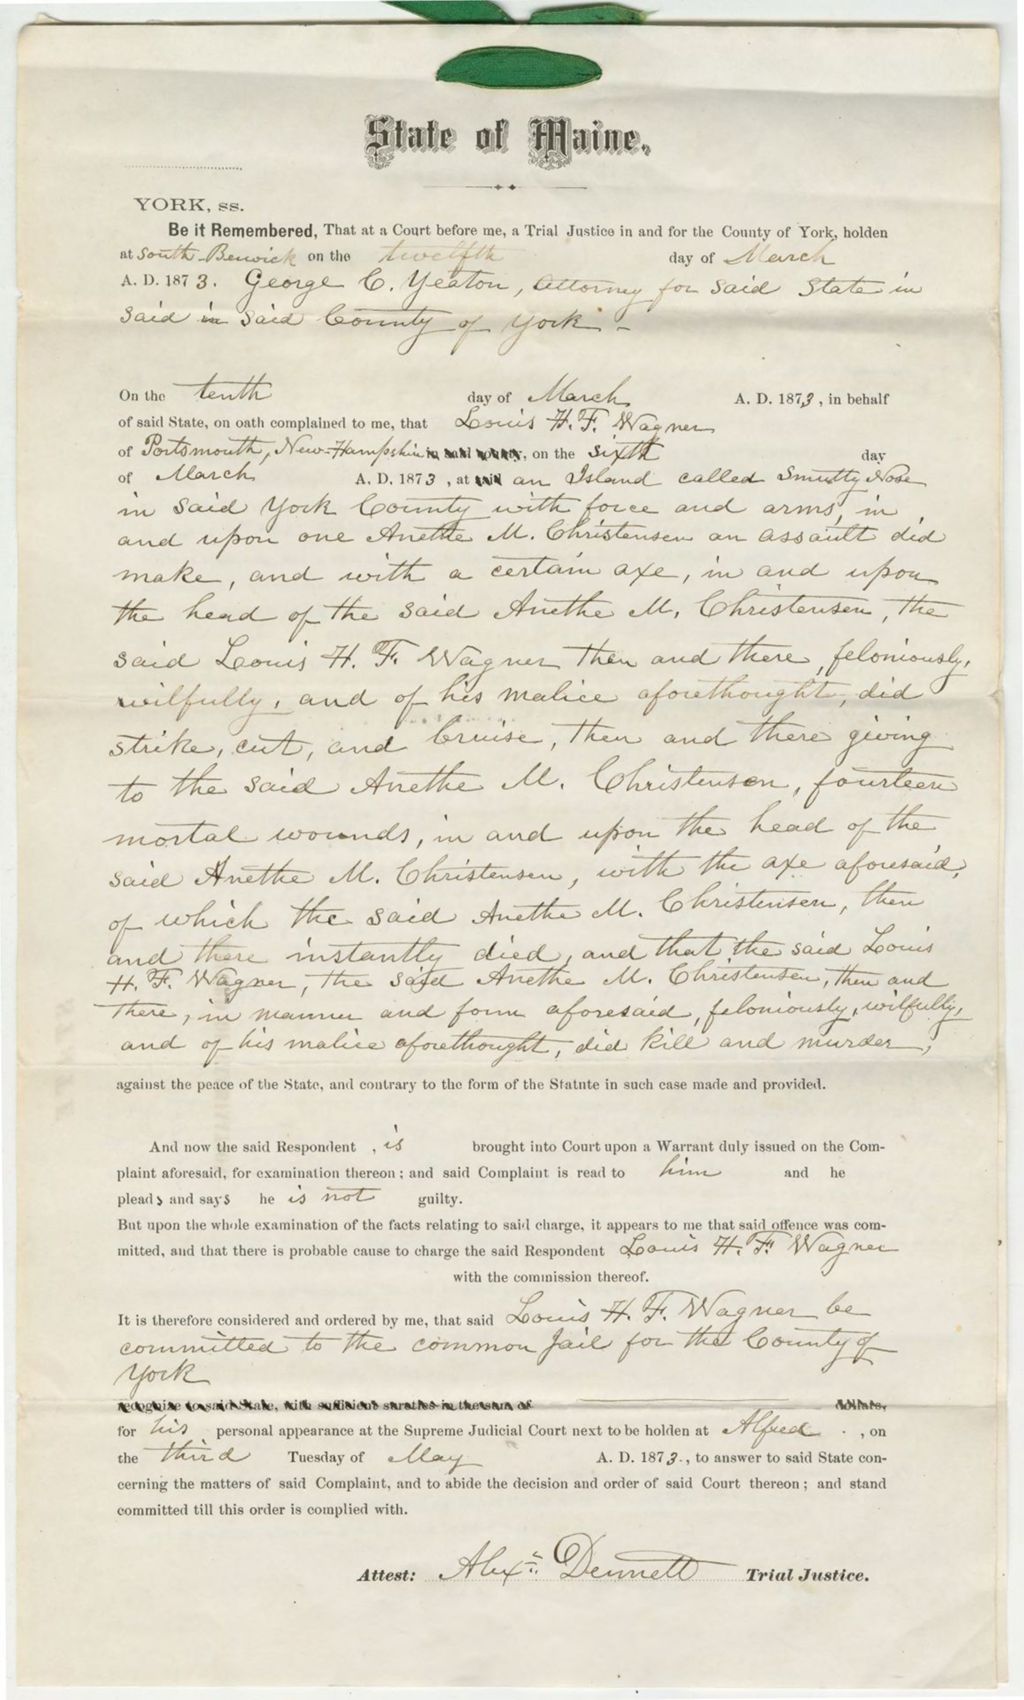 State of Maine,
YORK, ss.
Be it Remembered, That at a Court before me, a Trial Justice in and for the County of York, holden
at South-Berwick on the twelfth day of March
A. D. 1873. George C. Yeaton, Attorney for said State in
said in said County of York -
On the tenth day of March A. D. 1873, in behalf
of said State, on oath complained to me, that Louis H. F. Wagner
of Portsmouth, New-Hampshire in said county, on the Sixth day
of March A. D. 1873, at said an Island called Smutty Nose
in said York County with force and arms, in
and upon one Anethe M. Christensen an assault did
make, and with a certain axe, in and upon
the head of the said Anethe M. Christensen, the
said Louis H. F. Wagner then and there, feloniously,
wilfully, and of his malice aforethought, did
strike, cut, and bruise, then and there giving
to the said Anethe M. Christenson, fourteen
mortal wounds, in and upon the head of the
said Anethe M. Christensen, with the axe aforesaid,
of which the said Anethe M. Christensen, then
and there instantly died, and that the said Louis
H. F. Wagner, the said Anethe M. Christensen, then and
there, in manner and form aforesaid, feloniously, wilfully,
and of his malice aforethought, did kill and murder,
against the peace of the State, and contrary to the form of the Statute in such case made and provided.
And now the said Respondent, is brought into Court upon a Warrant duly issued on the Com-
plaint aforesaid, for examination thereon; and said Complaint is read to him and he
pleads and says he is not guilty.
But upon the whole examination of the facts relating to said charge, it appears to me that said offence was com-
mitted, and that there is probable cause to charge the said Respondent Louis H. F. Wagner
with the commission thereof.
It is therefore considered and ordered by me, that said Louis H. F. Wagner be
committed to the common Jail for the County of
York
recognize to said State, with sufficient sureties in the sum of Dollars,
for his personal appearance at the Supreme Judicial Court next to be holden at Alfred, on
the third Tuesday of May A. D. 1873, to answer to said State con-
cerning the matters of said Complaint, and to abide the decision and order of said Court thereon; and stand
committed till this order is complied with.
Attest: Alexr. Dennett Trial Justice.